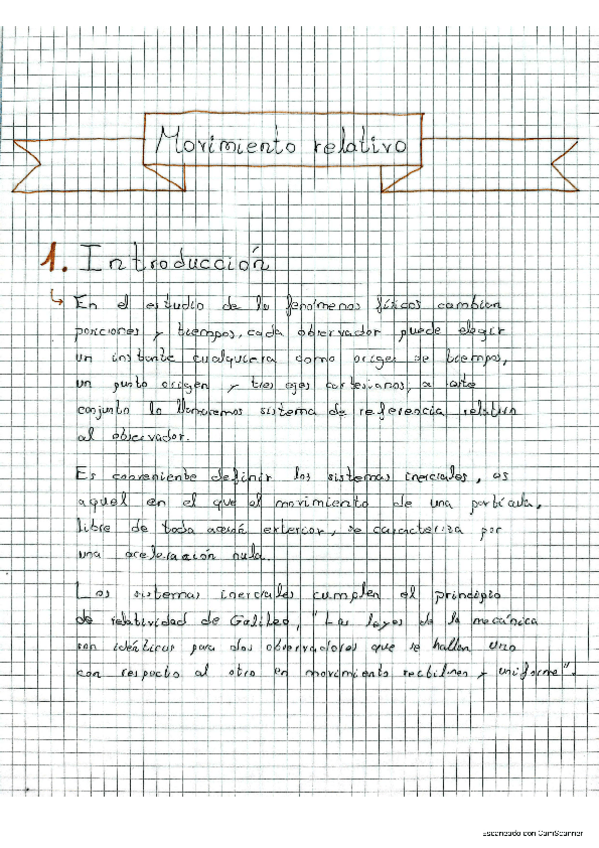 Movimiento relativo
1. Introducción
↳ En el estudio de lo fenómenos físicos cambian
posiciones y tiempos, cada observador puede elegir
un instante cualquiera como origen de tiempos,
un punto origen y tres ejes cartesianos, a este
conjunto lo llamaremos sistema de referencia relativo
al observador.
Es conveniente definir los sistemas inerciales, es
aquel en el que el movimiento de una partícula,
libre de toda acción exterior, se caracteriza por
una aceleración nula.
Los sistemas inerciales cumplen el principio
de relatividad de Galileo, "Las leyes de la mecánica
son idénticas para dos observadores que se hallen uno
con respecto al otro en movimiento rectilíneo y uniforme".
Escaneado con CamScanner